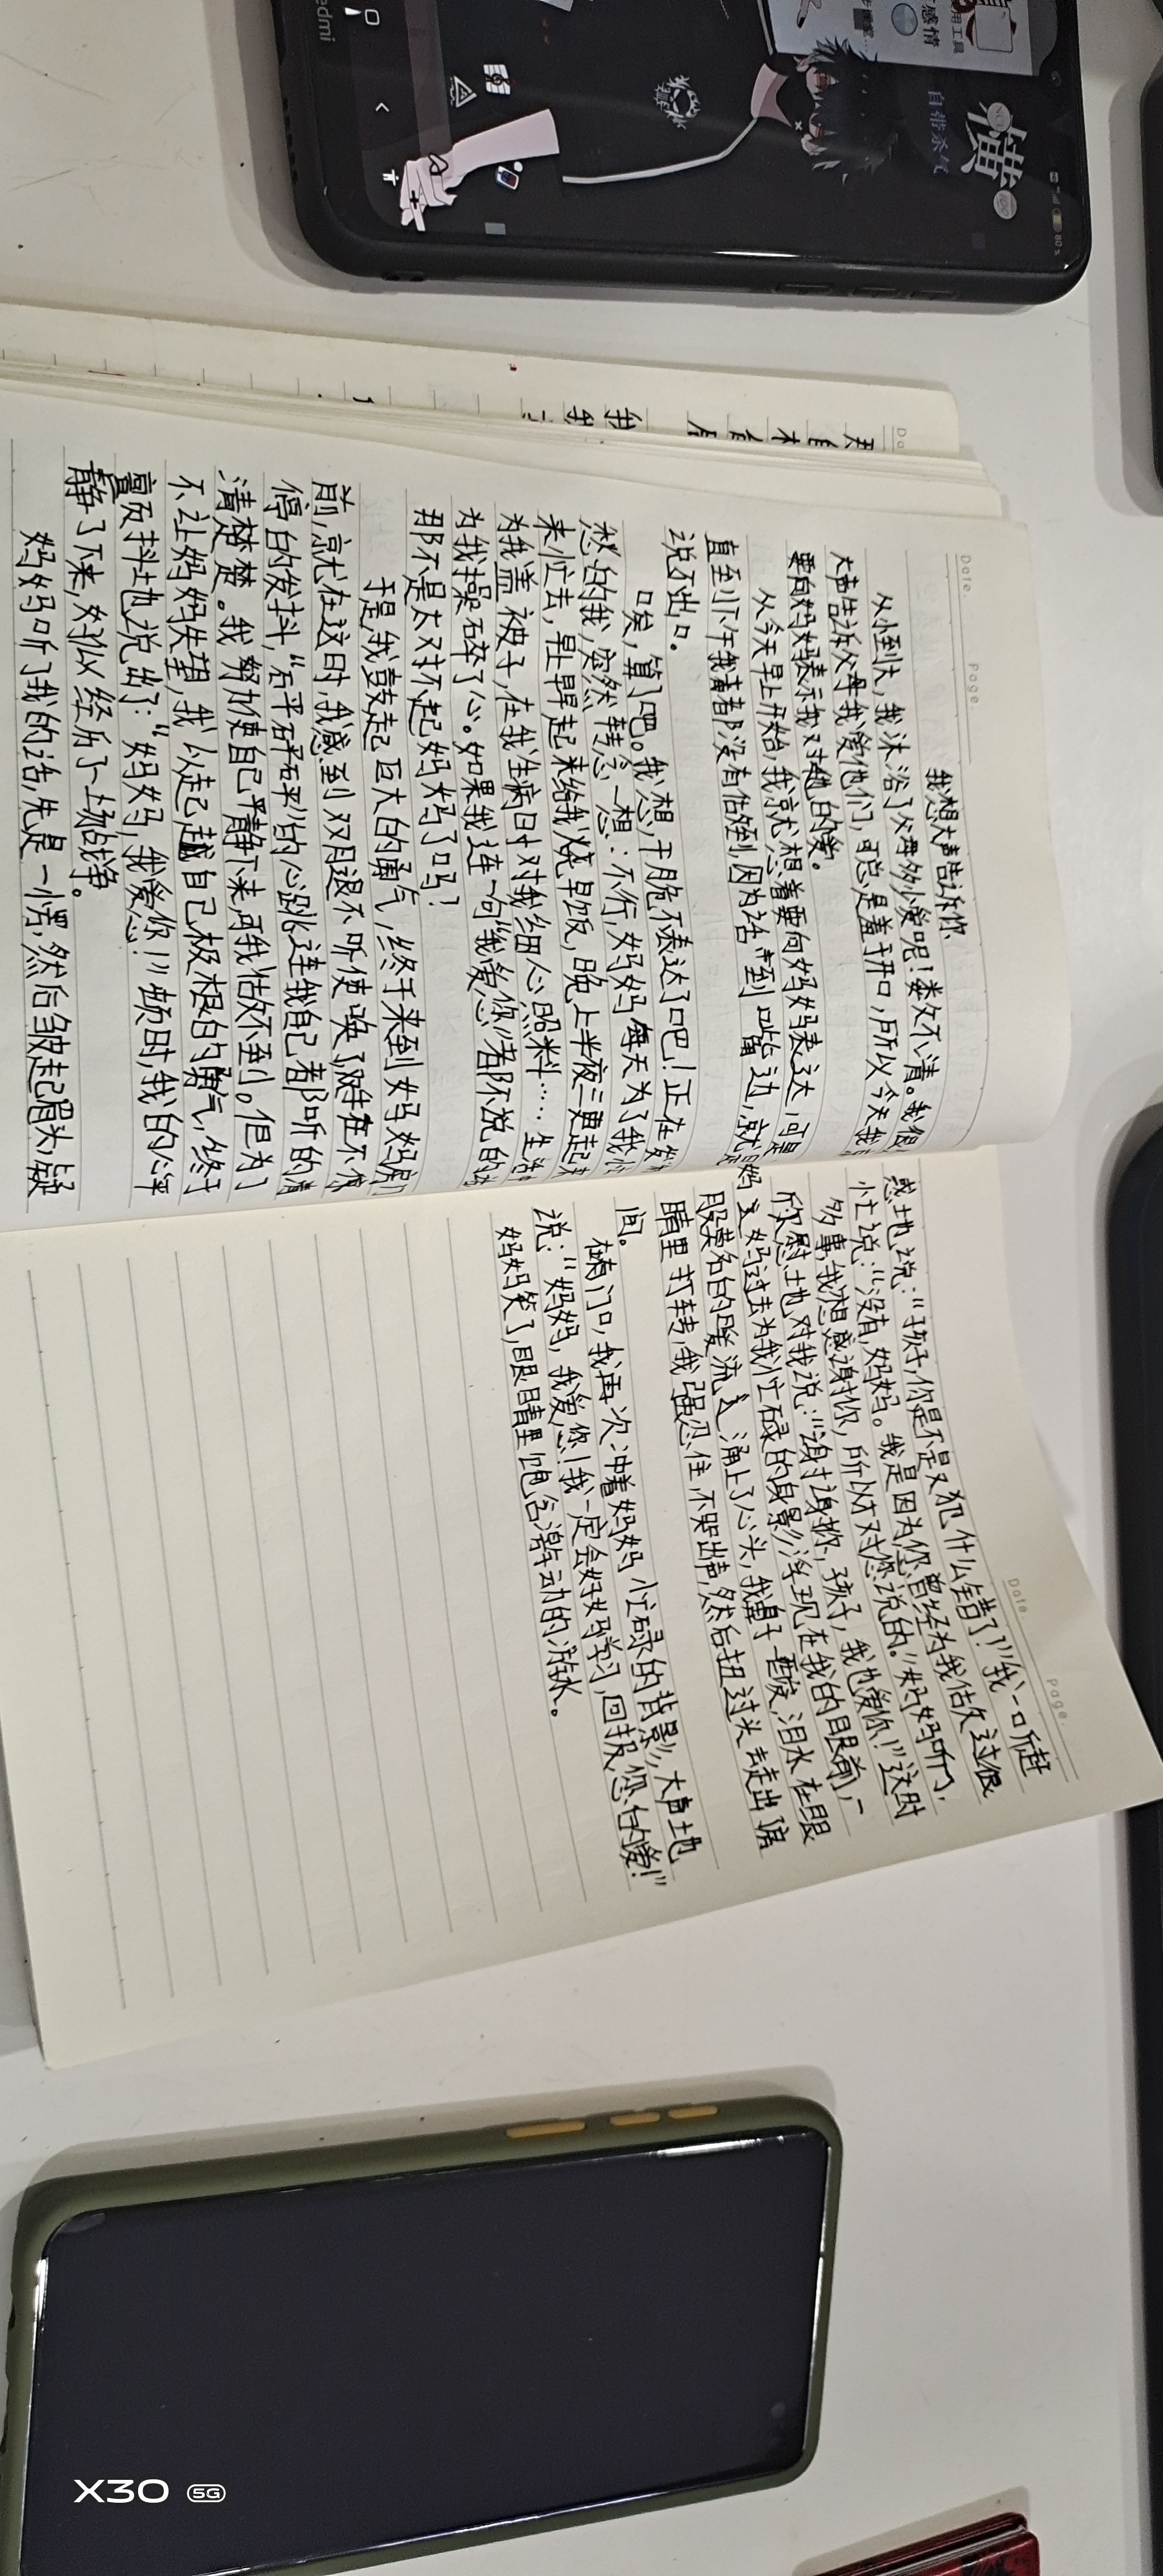 Date. Page.
我想大声告诉你
从小到大，我沐浴了父母多少爱呢！数次不清。我很
大声告诉父母我爱他们，可总是羞于开口，所以今天我
要向妈妈表示我对她的爱。
从今天早上开始，我就想着要向妈妈表达，可是
直至到下午我都没有做到，因为话一到嘴边，就
说不出口。
唉，算了吧。我想，干脆不表达了吧！正在发
愁的我，突然转念一想：不行，妈妈每天为了我忙
来忙去，早上早起来给我烧早饭，晚上半夜三更起来
为我盖被子，在我生病时对我细心照料……生活
为我操碎了心。如果我连一句“我爱你”都不说的
那不是太对不起妈妈了吗？
于是，我鼓起巨大的勇气，终于来到妈妈房门
前，就在这时，我感到双腿不听使唤了，站在不停
停的发抖，“砰砰砰”的心跳连我自己都听的清
清楚楚。我努力使自己平静下来，可我做不到。但为了
不让妈妈失望，我以起越自己极限的勇气，终于
颤抖地说出了：“妈妈，我爱你！”顿时，我的心平
静了下来，好似经历了一场战争。
妈妈听了我的话，先是一愣，然后皱起眉头，疑
Date. Page.
惑地说：“孩子，你是不是又犯什么错了！”我一听赶
忙说：“没有，妈妈。我是因为您曾经为我做过很
多事，我想感谢你，所以才对您说的。”妈妈听了，
欣慰地对我说：“谢谢你，孩子，我也爱你！”这时
妈妈过去为我忙碌的身影浮现在我的眼前，一
股莫名的暖流涌上了心头，我鼻子一酸，泪水在眼
睛里打转，我强忍住不哭出声，然后扭过头去走出房
间。
在门口，我再次冲着妈妈忙碌的背影，大声地
说：“妈妈，我爱您！我一定会好好学习，回报您的爱！”
妈妈笑了，眼睛里饱含激动的泪水。
edmi
自带杀气
X30 5G